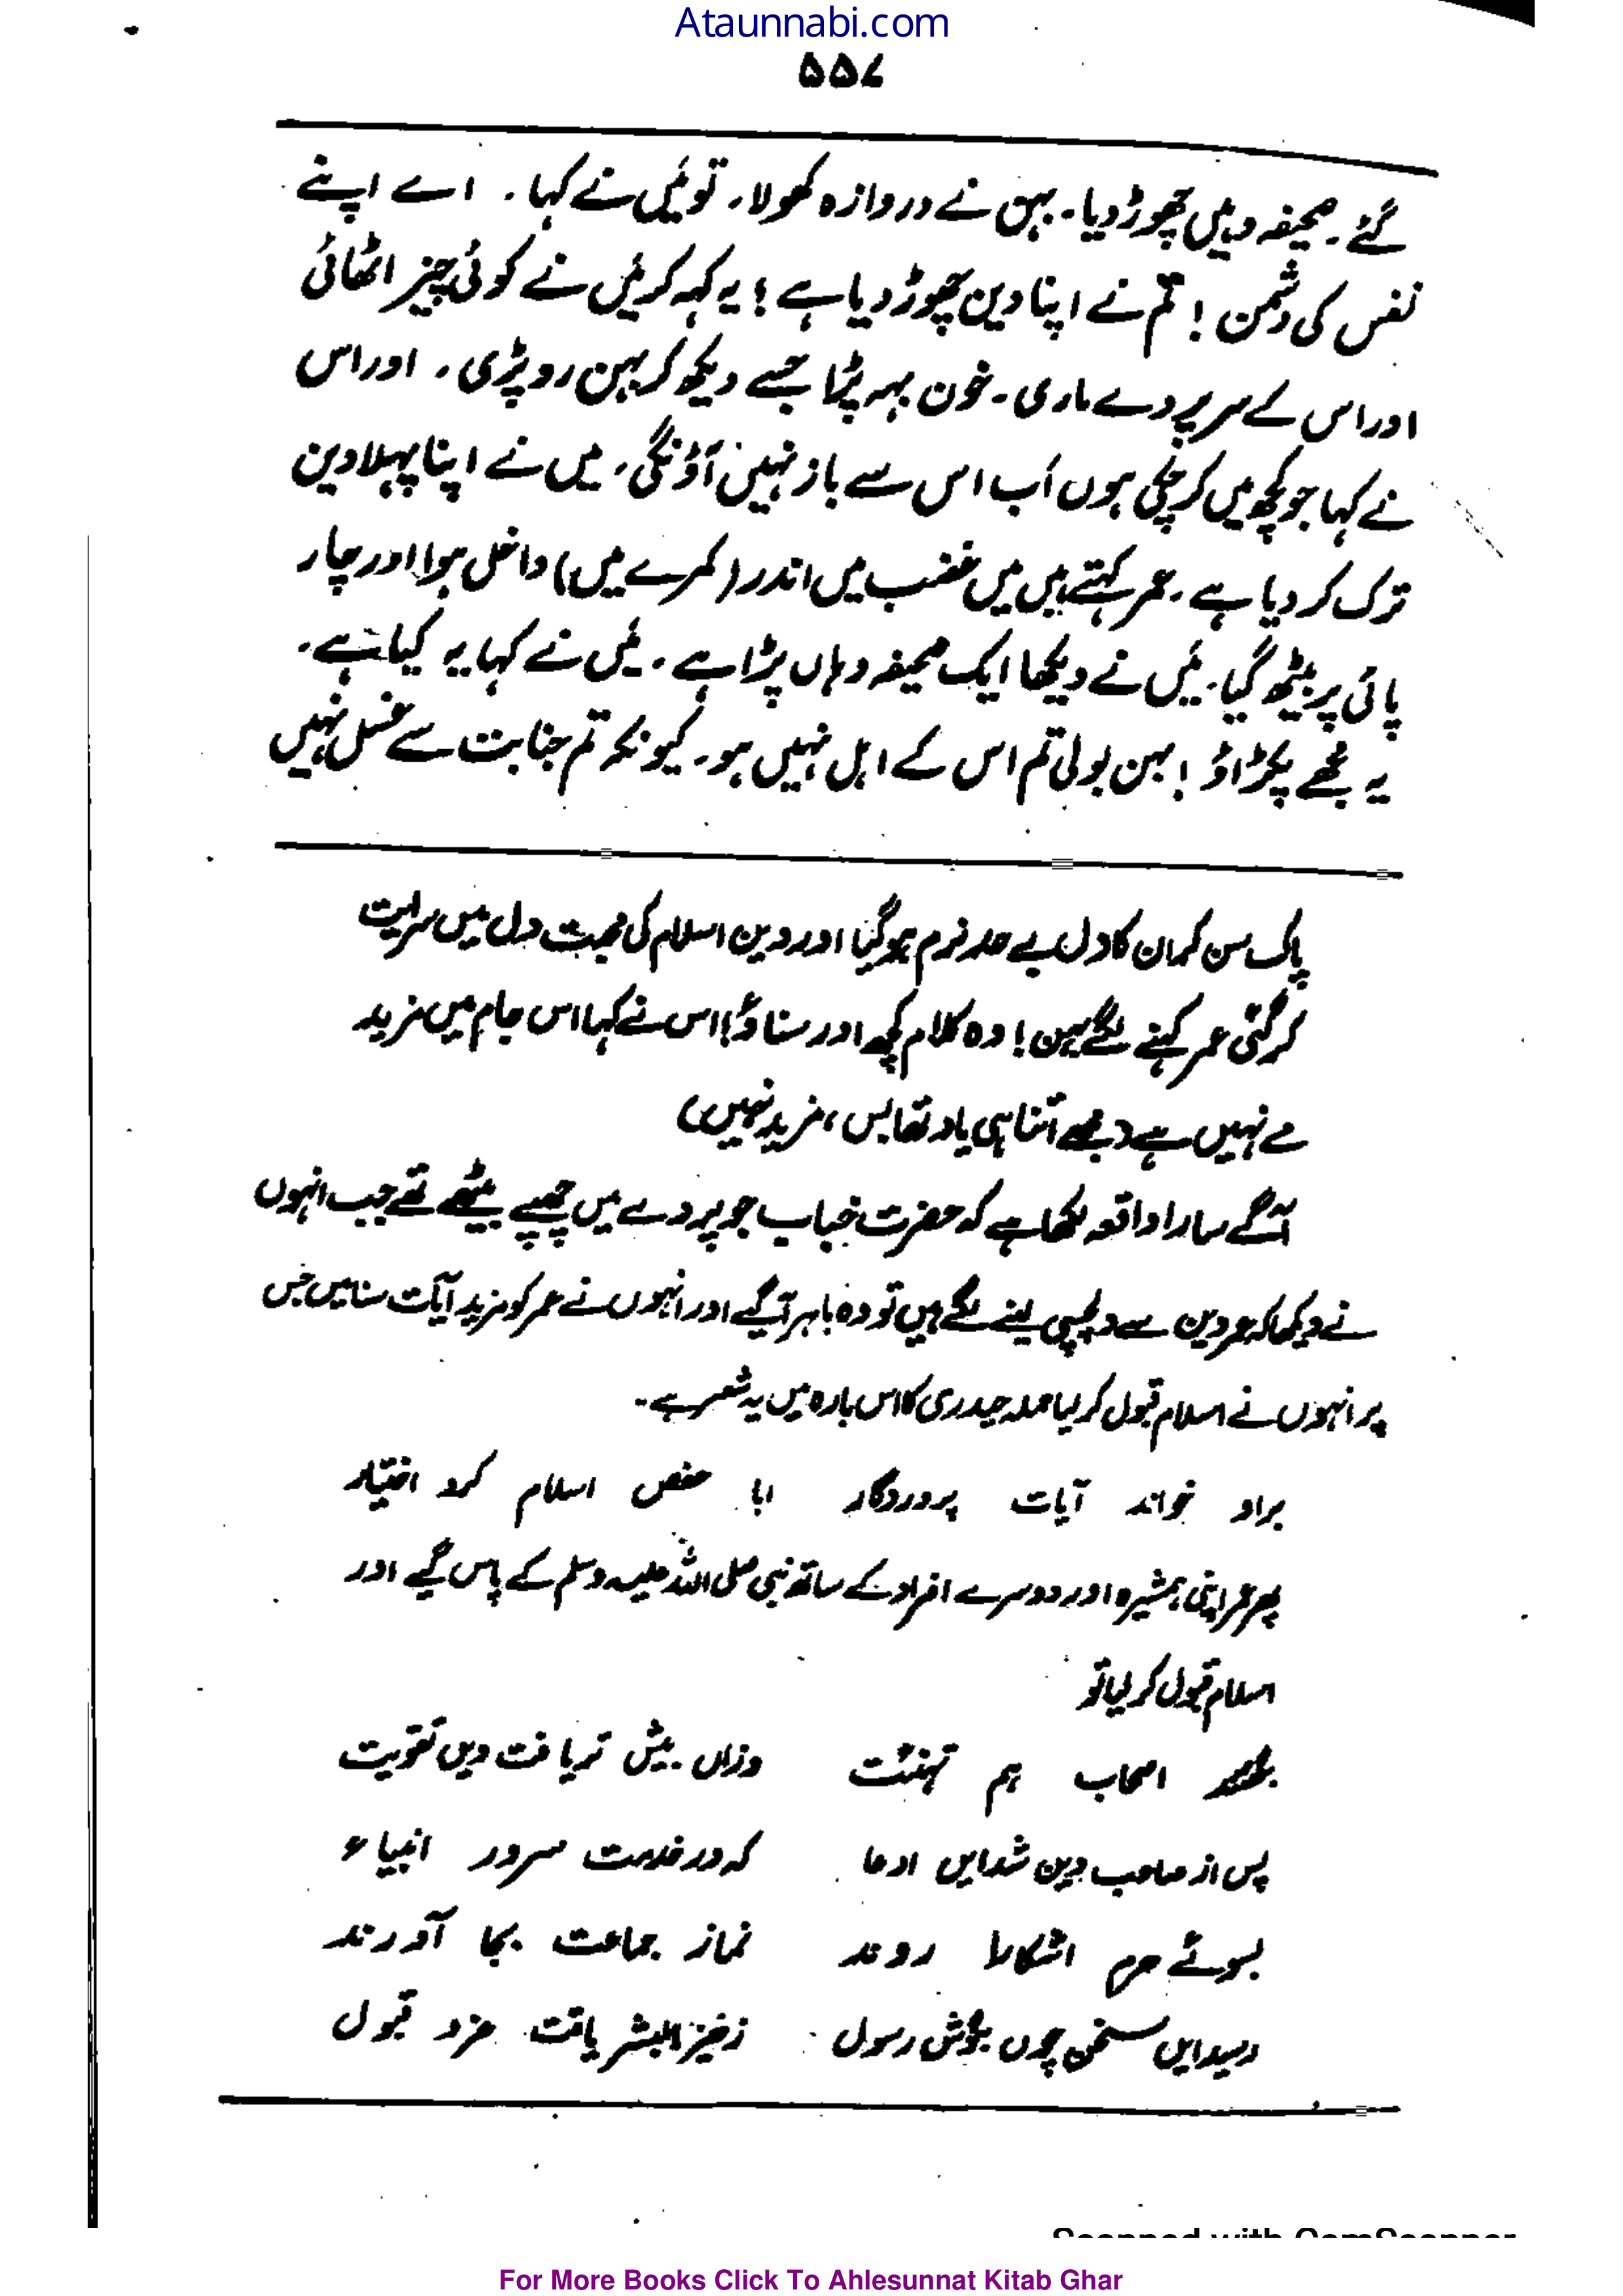 Ataunnabi.com
۵۵۷
گئے۔ صحیفہ وہیں چھوڑ دیا۔ بہن نے دروازہ کھولا۔ تو مَیں نے کہا۔ اے اپنے
نفس کی دشمن! تم نے اپنا دین چھوڑ دیا ہے؛ یہ کہہ کر مَیں نے کوئی چیز اٹھائی
اور اس کے سر پر دے ماری۔ خون بہہ پڑا جسے دیکھ کر بہن رو پڑی۔ اور اس
نے کہا جو کچھ میں کر چکی ہوں اَب اس سے باز نہیں آؤنگی۔ میں نے اپنا پہلا دین
ترک کر دیا ہے۔ عمر کہتے ہیں میں غضب میں اندر (کمرے میں) داخل ہوا اور چار
پائی پر بیٹھ گیا۔ مَیں نے دیکھا ایک صحیفہ وہاں پڑا ہے۔ مَیں نے کہا یہ کیا ہے۔
یہ مجھے پکڑاؤ! بہن بولی تم اس کے اہل نہیں ہو۔ کیونکہ تم جنابت سے غسل نہیں
پاک سن کر ان کا دل بے حد نرم ہو گیا اور دین اسلام کی محبت دل میں سرایت
کر گئی عمر کہنے لگے بہن! وہ کلام کچھ اور سناؤ؛ اس نے کہا اس جام میں مزید
مے نہیں ہے (مجھے اتنا ہی یاد تھا بس، مزید نہیں)
آگے سارا واقعہ لکھا ہے کہ حضرت خباب جو پردے میں چھپے بیٹھے تھے جب انہوں
نے دیکھا کہ عمر دین سے دلچسپی لینے لگے ہیں تو وہ باہر آگیے اور انہوں نے عمر کو مزید آیات سنائیں جس
پر انہوں نے اسلام قبول کر لیا حملہ حیدری کا اس بارہ میں یہ شعر ہے۔
براو خواند آیات پروردگار ابا حفص اسلام کرد اختیار
پھر عمر اپنی ہمشیرہ اور دوسرے افراد کے ساتھ نبی صلی اللہ علیہ وسلم کے پاس گیے اور
اسلام قبول کر لیا تو
اصحاب ہم تہنئت وزاں بیش تر یافت دیں تقویت
پس از صاحب دین شد ایں ادعا کہ در خدمت سرور انبیاء
بسوئے حرم اشکارا روند نماز جماعت بجا آورند
رسید ایں سخن چوں بگوش رسول زخیر البشر یافت عزد قبول
For More Books Click To Ahlesunnat Kitab Ghar